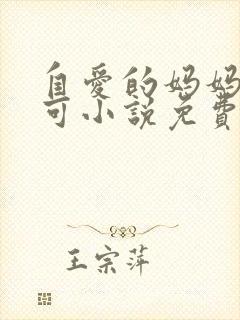 自爱的妈妈
可小说免费
王宗萍